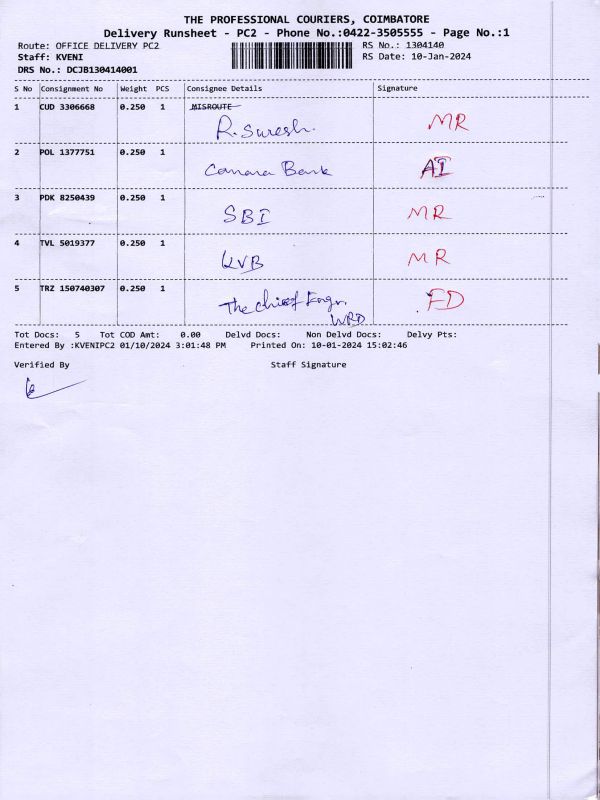 THE PROFESSIONAL COURIERS, COIMBATORE
Delivery Runsheet - PC2 - Phone No.:0422-3505555 - Page No.:1
Route: OFFICE DELIVERY PC2 RS No.: 1304140
Staff: KVENI RS Date: 10-Jan-2024
DRS No.: DCJB130414001
S No Consignment No Weight PCS Consignee Details Signature
1 CUD 3306668 0.250 1 MISROUTE
R. Suresh. MR
2 POL 1377751 0.250 1
Canara Bank AI
3 PDK 8250439 0.250 1
SBI MR
4 TVL 5019377 0.250 1
KVB MR
5 TRZ 150740307 0.250 1
The Chief Engr. FD
WRD
Tot Docs: 5 Tot COD Amt: 0.00 Delvd Docs: Non Delvd Docs: Delvy Pts:
Entered By :KVENIPC2 01/10/2024 3:01:48 PM Printed On: 10-01-2024 15:02:46
Verified By Staff Signature